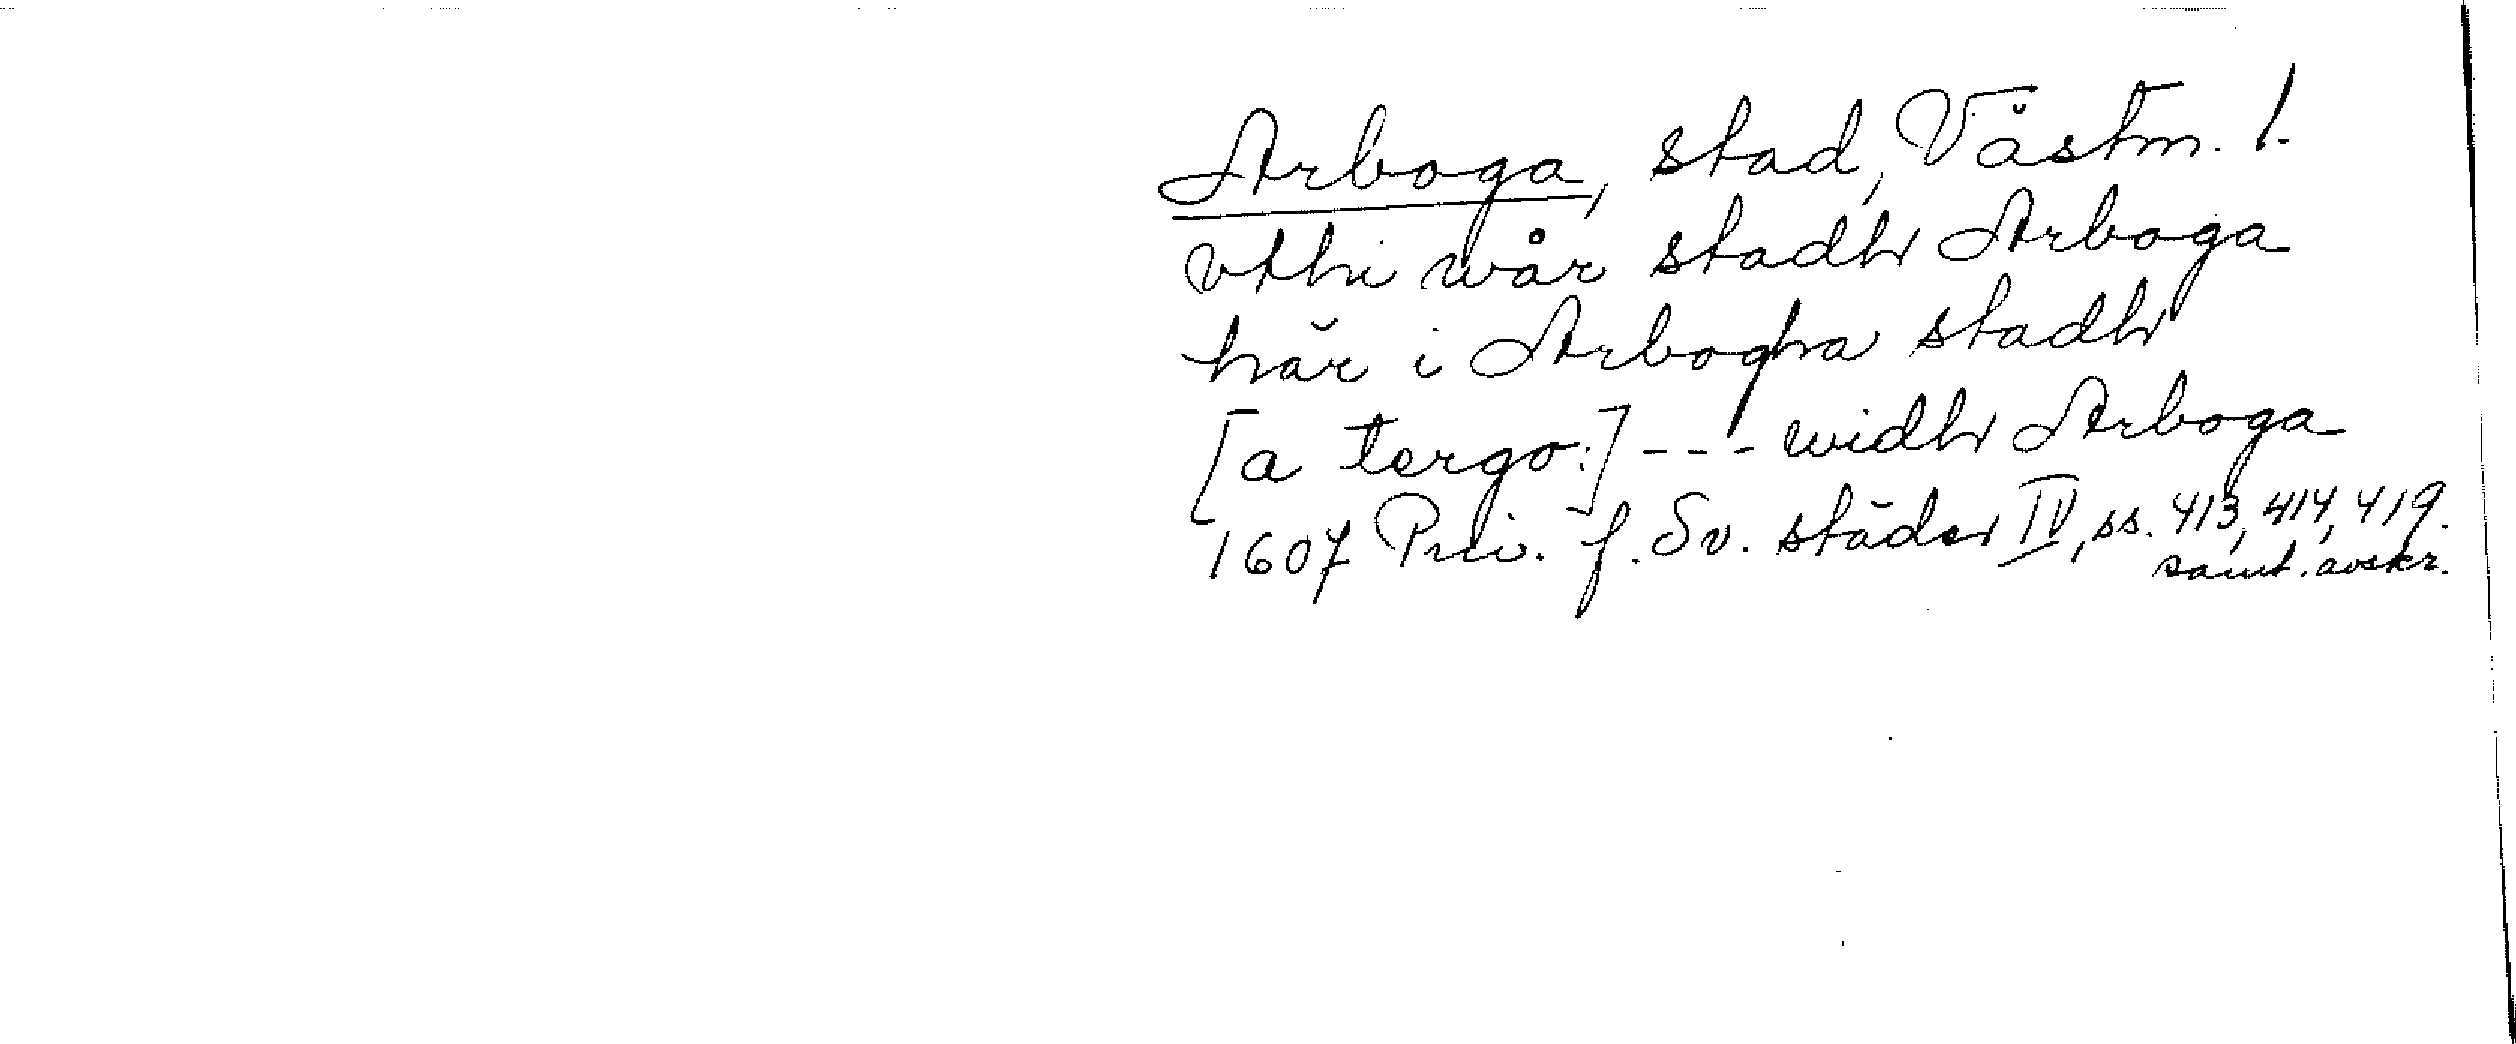 Arboga, stad, Västm. l.
vthi wår stadh Arboga
här i Arbogha stadh
[a tergo:] --- widh Arboga
1607 Priv. f. Sv. städer IV, ss. 413, 414, 419.
samt. avskr.